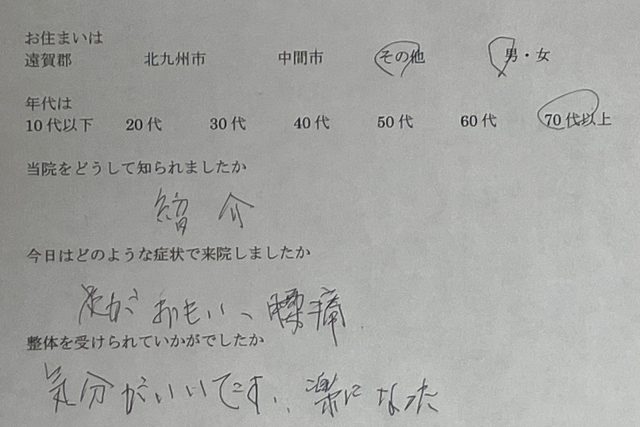 お住まいは
遠賀郡 北九州市 中間市 その他 男・女
年代は
10代以下 20代 30代 40代 50代 60代 70代以上
当院をどうして知られましたか
紹介
今日はどのような症状で来院しましたか
足がおもい、腰痛
整体を受けられていかがでしたか
気分がいいです、楽になった